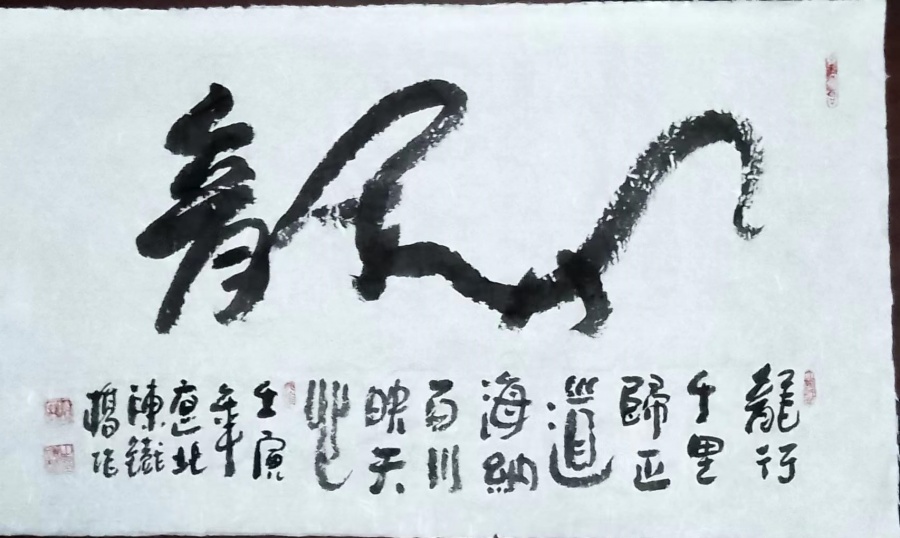 龍
龍行
千里
歸正
道
海納
百川
映天
壬寅
年
陳鐵
楊作